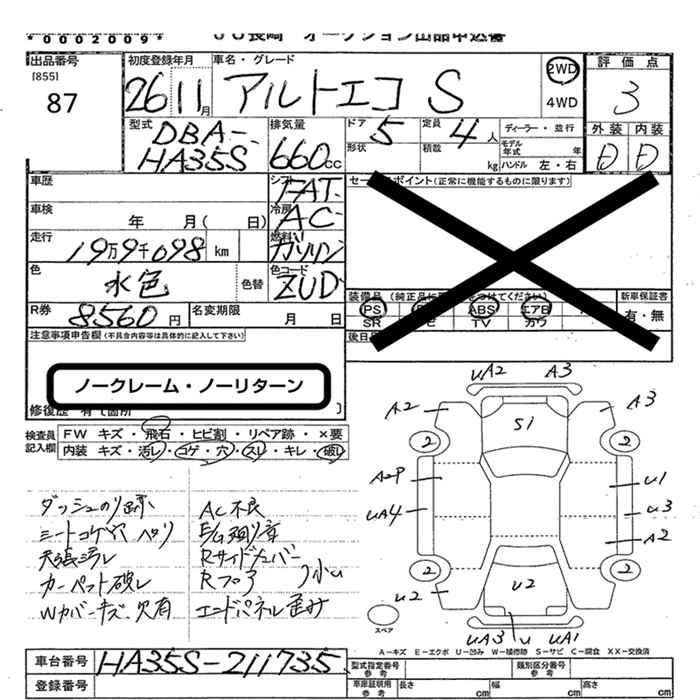 *0002009*
JU長崎 オークション出品申込書
出品番号 初度登録年月 車名・グレード 評価点
[855]
87 26 11月 アルトエコ S 2WD 4WD 3
型式 DBA- HA35S 排気量 660cc ドア 5 定員 4人 ディーラー・並行 外装 内装
形状 積数 kg モデル年式 年 ハンドル 左・右 D D
車歴 シフト FAT セールスポイント(正常に機能するものに限ります)
車検 年 月( 日) 冷房 AC
走行 19万9千098 km 燃料 ガソリン
色 水色 色替 色コード ZUD
装備品(純正品に をつけてください) 新車保証書
PS ABS エアB 有・無
SR TV カワ
R券 8560円 名変期限 月 日 後日
注意事項申告欄(不具合内容等は具体的に記入して下さい)
ノークレーム・ノーリターン
修復歴 有 箇所
検査員記入欄 FW キズ・飛石・ヒビ割・リペア跡・×要
内装 キズ・汚レ・コゲ・穴・スレ・キレ・破レ
ダッシュのり跡 AC不良
シートコゲ穴 ヘタリ E/G廻り音
天張汚レ Rサイドメンバー
カーペット破レ Rフロア 小U
Wカバーキズ 欠有 エンドパネル歪み
UA2 A3
A2 S1 A3
2 2
A2P U1
UA4 U3
A2
2 2
U2 U2
スペア UA3 U UA1
A-キズ E-エクボ U-凹み W-補修跡 S-サビ C-腐食 X X-交換済
車台番号 HA35S-211735 型式指定番号 参考 類別区分番号 参考
登録番号 車庫証明用 参考 長さ cm 幅 cm 高さ cm